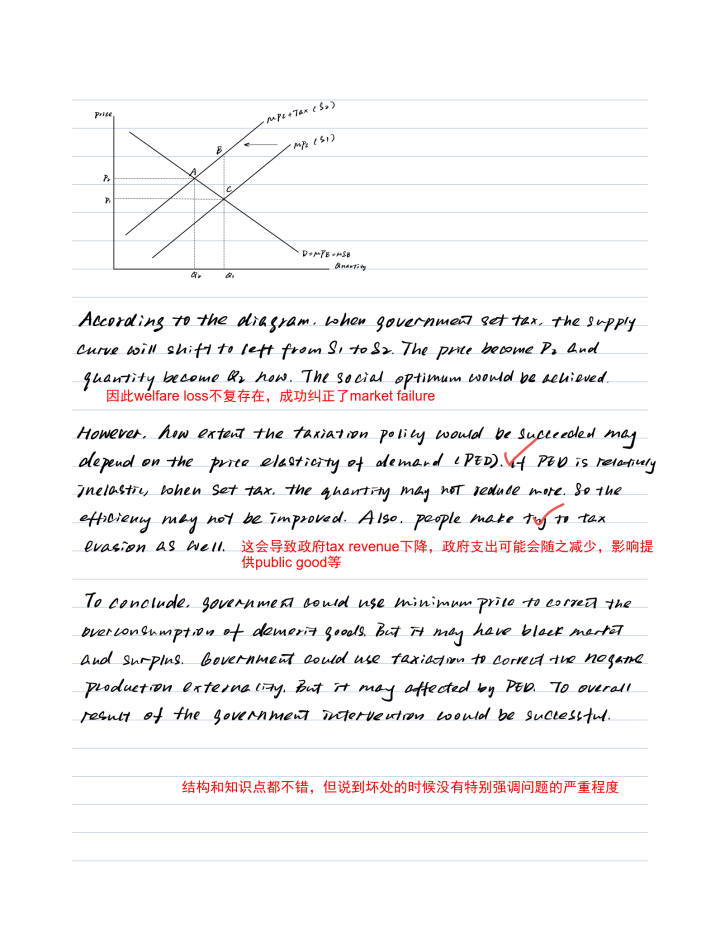 Price
MPC+Tax (S2)
MPC (S1)
B
A
P2
C
P1
D=MPB=MSB
Quantity
Q2 Q1
According to the diagram. When government set tax, the supply
curve will shift to left from S1 to S2. The price become P2 and
quantity become Q2 now. The social optimum would be achieved.
因此welfare loss不复存在，成功纠正了market failure
However, how extent the taxiation policy would be succeeded may
depend on the price elasticity of demand (PED). if PED is relatively
inelastic, when set tax, the quantity may not reduce more. So the
efficiency may not be improved. Also, people make try to tax
evasion as well. 这会导致政府tax revenue下降，政府支出可能会随之减少，影响提
供public good等
To conclude, government could use minimum price to correct the
overconsumption of demerit goods. But it may have black market
and surplus. Government could use taxiation to correct the negative
production externality. But it may affected by PED. To overall
result of the government intervention would be successful.
结构和知识点都不错，但说到坏处的时候没有特别强调问题的严重程度